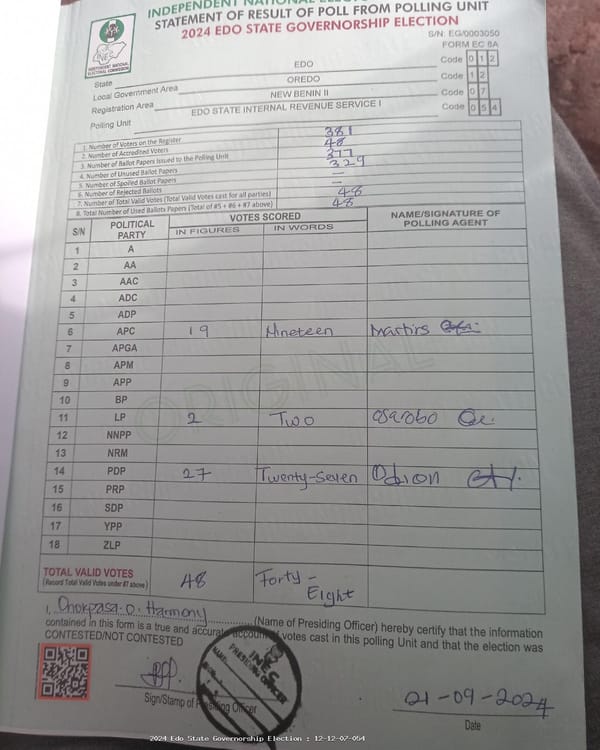 INDEPENDENT NATIONAL
STATEMENT OF RESULT OF POLL FROM POLLING UNIT
2024 EDO STATE GOVERNORSHIP ELECTION
S/N: EG/0003050
FORM EC 8A
INDEPENDENT NATIONAL ELECTORAL COMMISSION
State EDO Code 0 1 2
Local Government Area OREDO Code 1 2
Registration Area NEW BENIN II Code 0 7
Polling Unit EDO STATE INTERNAL REVENUE SERVICE I Code 0 5 4
1. Number of Voters on the Register 381
2. Number of Accredited Voters 48
3. Number of Ballot Papers Issued to the Polling Unit 377
4. Number of Unused Ballot Papers 329
5. Number of Spoiled Ballot Papers –
6. Number of Rejected Ballots –
7. Number of Total Valid Votes (Total Valid Votes cast for all parties) 48
8. Total Number of Used Ballots Papers (Total of #5 + #6 + #7 above) 48
S/N POLITICAL PARTY VOTES SCORED NAME/SIGNATURE OF POLLING AGENT
IN FIGURES IN WORDS
1 A
2 AA
3 AAC
4 ADC
5 ADP
6 APC 19 Nineteen Martins
7 APGA
8 APM
9 APP
10 BP
11 LP 2 Two Osarobo
12 NNPP
13 NRM
14 PDP 27 Twenty-Seven Odion
15 PRP
16 SDP
17 YPP
18 ZLP
ORIGINAL
TOTAL VALID VOTES 48 Forty-
(Record Total Valid Votes under #7 above) Eight
I, Harmony (Name of Presiding Officer) hereby certify that the information
contained in this form is a true and accurate account of votes cast in this polling Unit and that the election was
CONTESTED/NOT CONTESTED
INEC
PRESIDING OFFICER
Sign/Stamp of Presiding Officer
21-09-2024
Date
2024 Edo State Governorship Election : 12-12-07-054